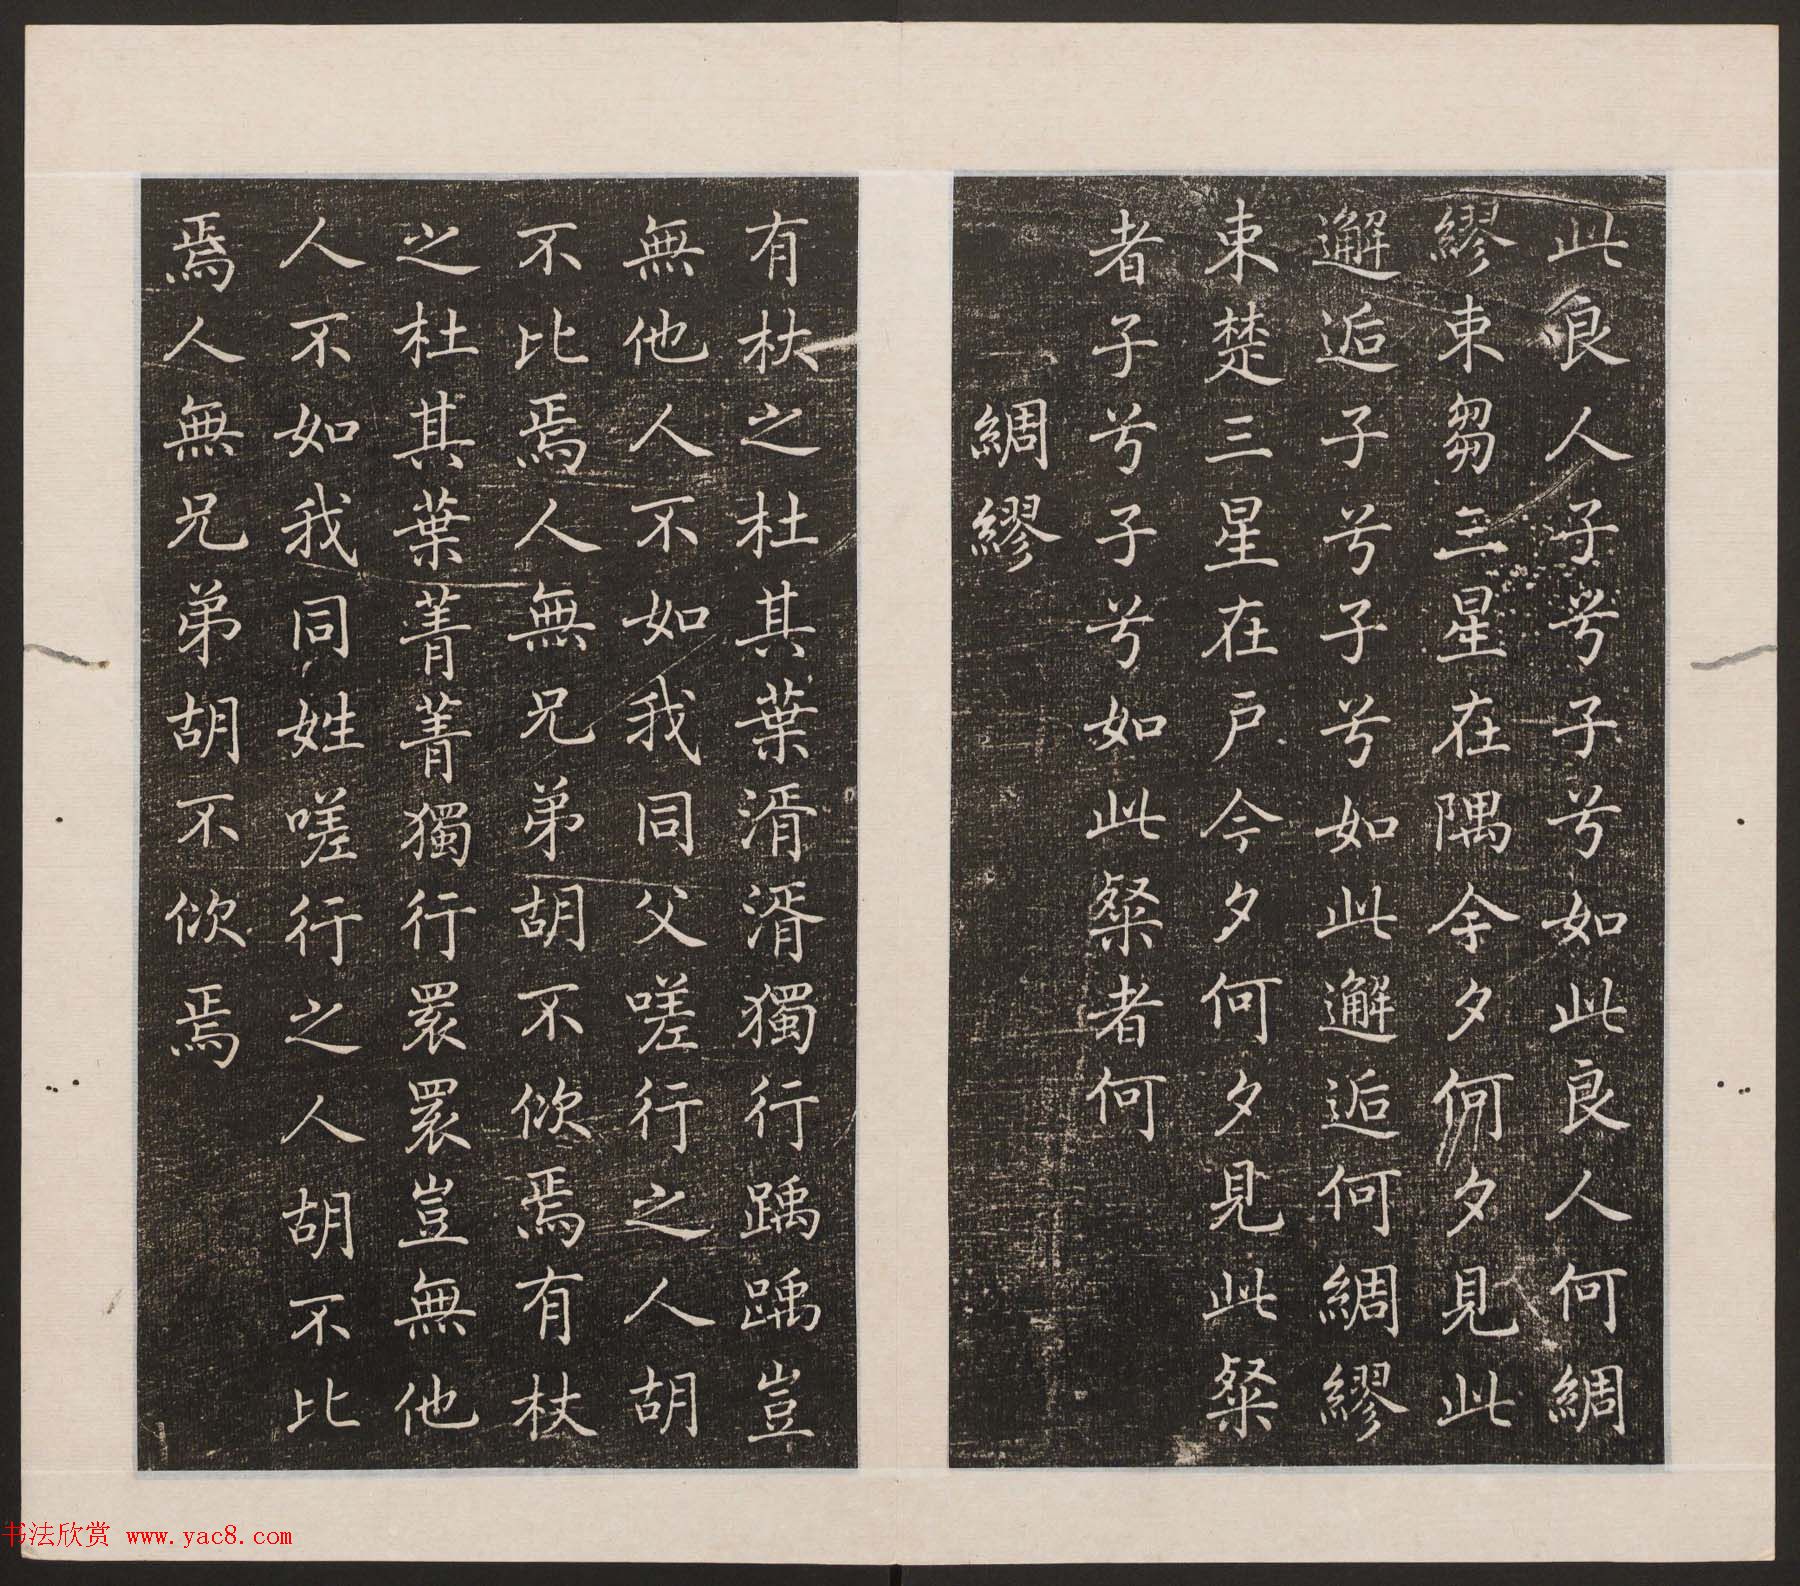 此良人子兮子兮如此良人何綢
繆束芻三星在隅余夕何夕見此
邂逅子兮子兮如此邂逅何綢繆
束楚三星在戶今夕何夕見此粲
者子兮子兮如此粲者何
綢繆
有杕之杜其葉湑湑獨行踽踽豈
無他人不如我同父嗟行之人胡
不比焉人無兄弟胡不佽焉有杕
之杜其葉菁菁獨行睘睘豈無他
人不如我同姓嗟行之人胡不比
焉人無兄弟胡不佽焉
书法欣赏 www.yac8.com